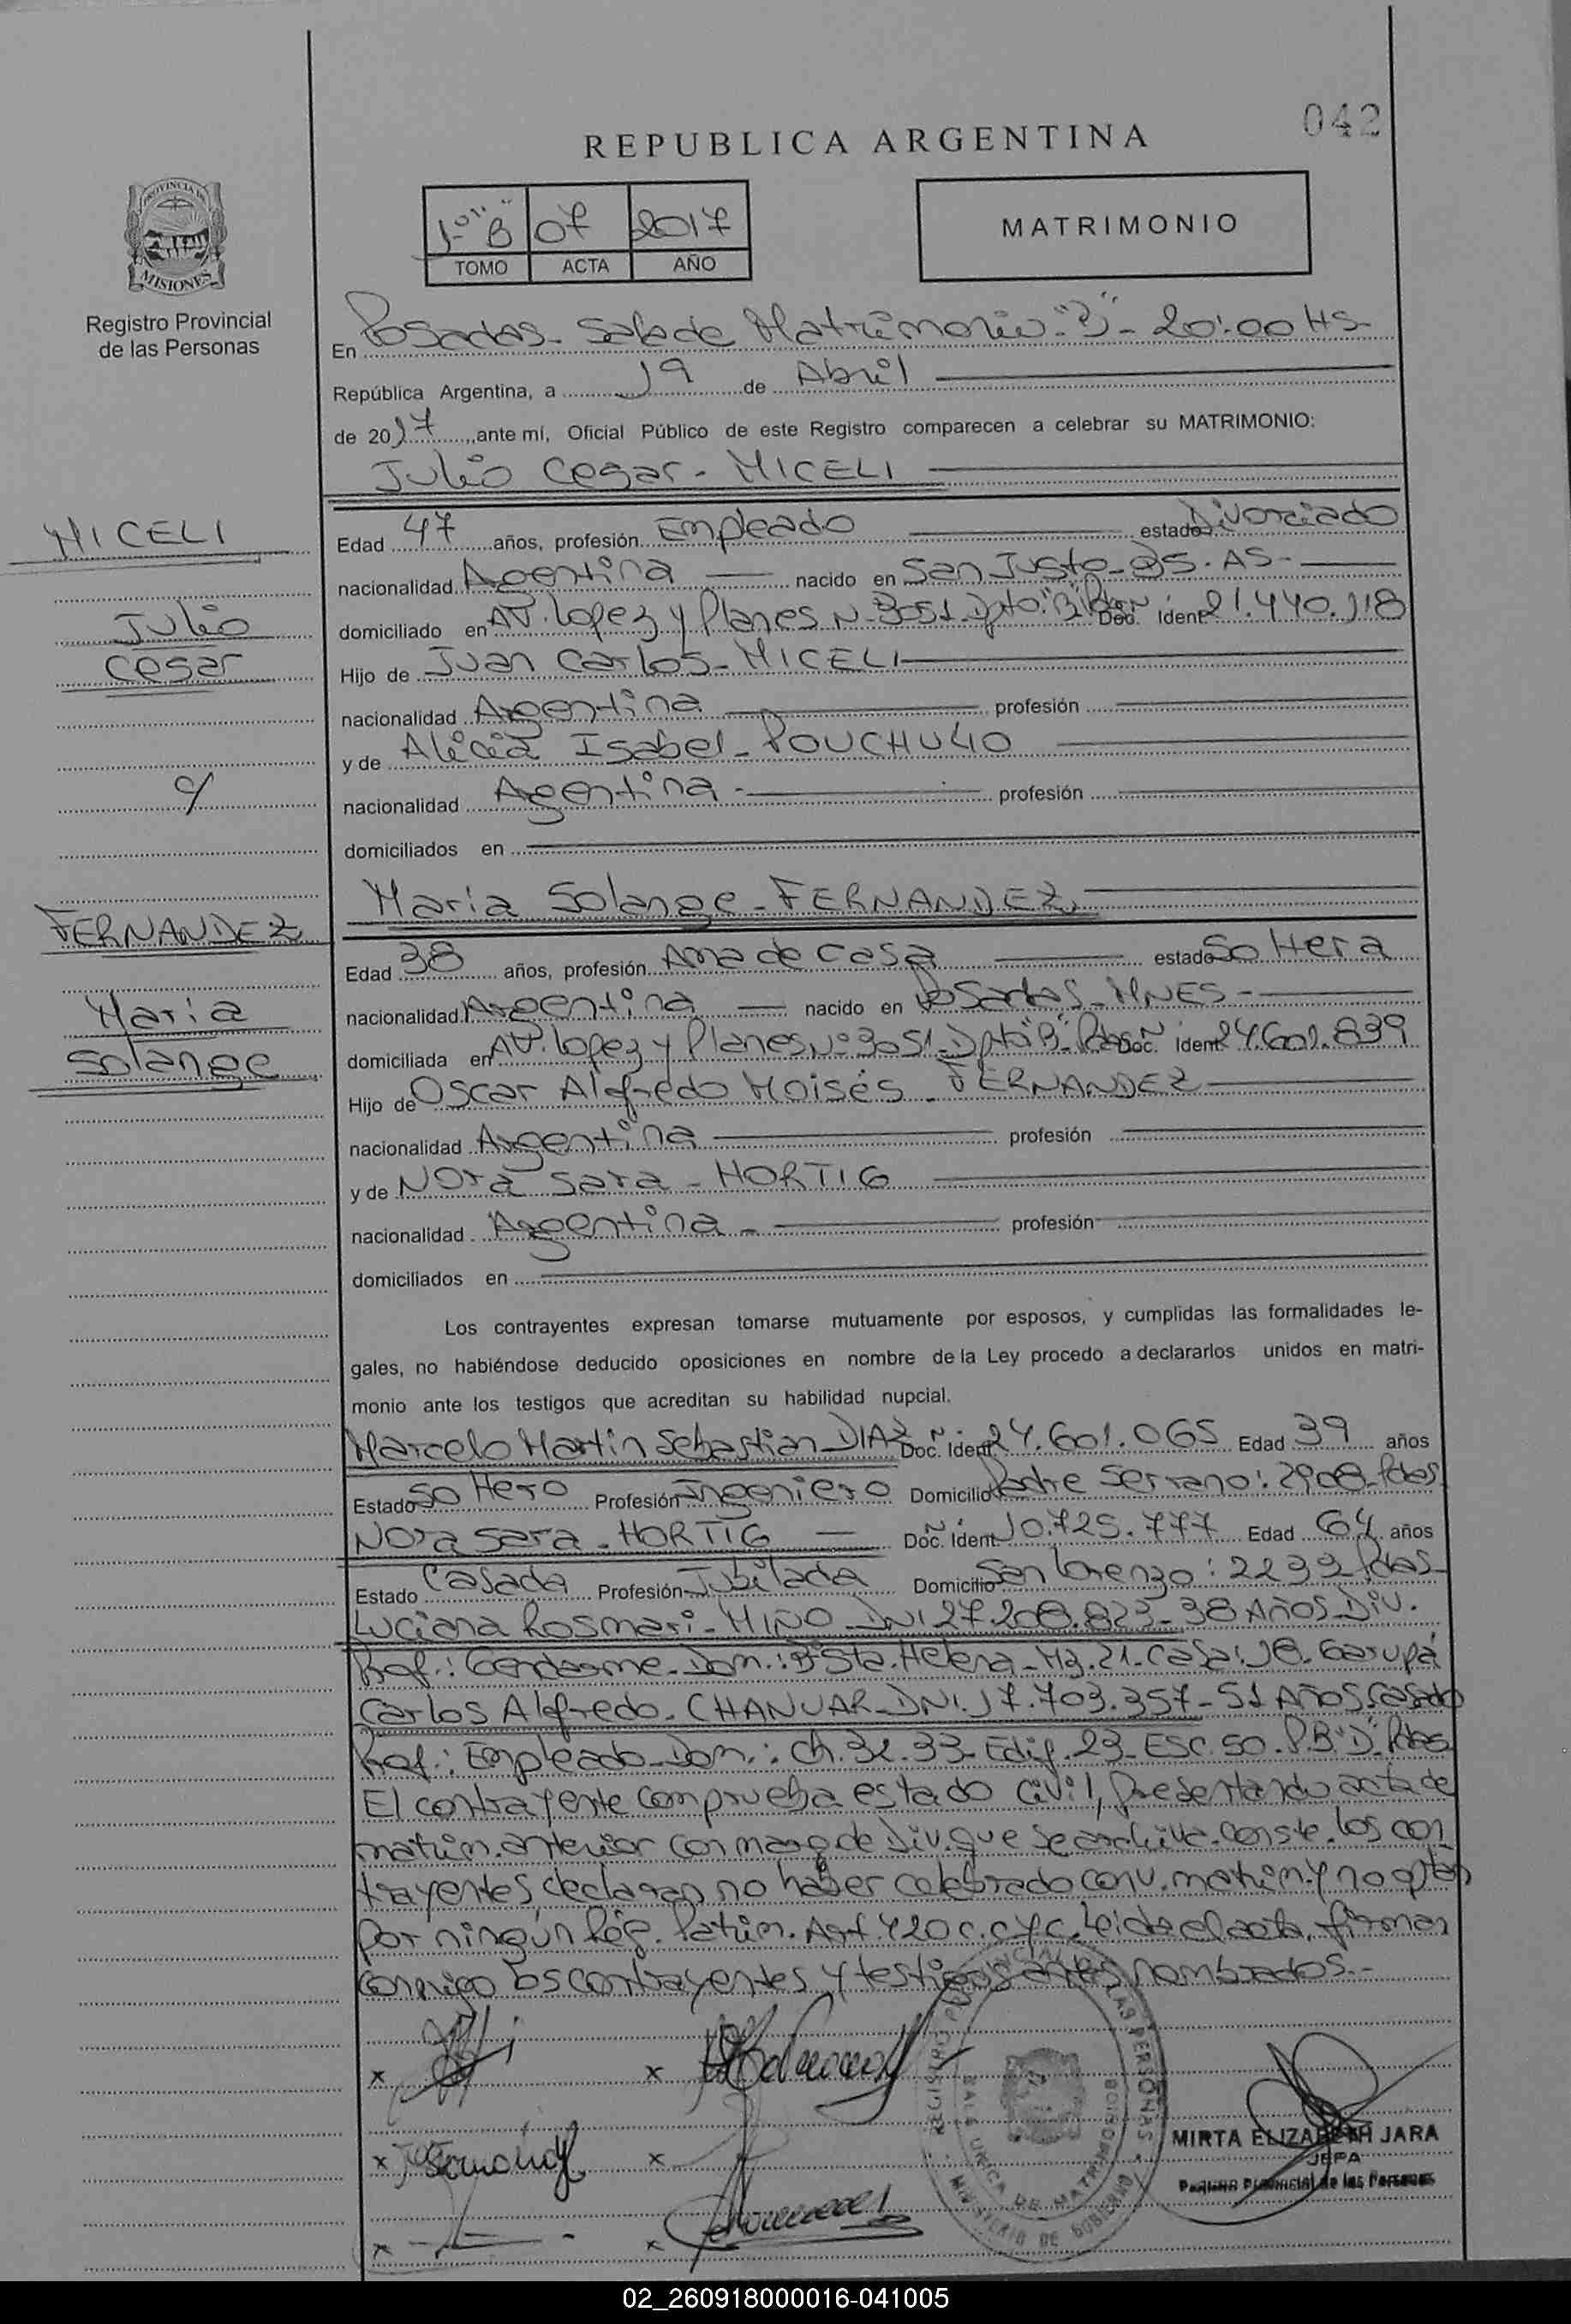 042
REPUBLICA ARGENTINA
1º "B" 07 2017
TOMO ACTA AÑO
MATRIMONIO
PROVINCIA DE
MISIONES
Registro Provincial
de las Personas
En Posadas - Sala de Matrimonio - 20:00 Hs-
República Argentina, a 19 de Abril
de 2017, ante mí, Oficial Público de este Registro comparecen a celebrar su MATRIMONIO:
Julio Cesar - MICELI
MICELI
Julio
Cesar
c/
FERNANDEZ
Maria
Solange
Edad 47 años, profesión Empleado estado Divorciado
nacionalidad Argentina nacido en San Justo - Bs. AS-
domiciliado en AV. Lopez y Planes Nº 3051 Dpto. "B" Pdas Doc. Ident. 21.440.118
Hijo de Juan Carlos - MICELI
nacionalidad Argentina profesión
y de Alicia Isabel - POUCHULO
nacionalidad Argentina - profesión
domiciliados en
Maria Solange - FERNANDEZ
Edad 38 años, profesión Ama de Casa estado Soltera
nacionalidad Argentina nacido en Posadas - MNES -
domiciliada en AV. Lopez y Planes Nº 3051 Dpto "B" Pdas Doc. Ident. 24.601.839
Hijo de Oscar Alfredo Moisés - FERNANDEZ
nacionalidad Argentina profesión
y de Nora Sara - HORTIG
nacionalidad Argentina - profesión
domiciliados en
Los contrayentes expresan tomarse mutuamente por esposos, y cumplidas las formalidades le-
gales, no habiéndose deducido oposiciones en nombre de la Ley procedo a declararlos unidos en matri-
monio ante los testigos que acreditan su habilidad nupcial.
Marcelo Martin Sebastian DIAZ Doc. Ident 24.601.065 Edad 39 años
Estado Soltero Profesión Ingeniero Domicilio Padre Serrano: 2908 Pdas
Nora Sara - HORTIG Doc. Ident 10.725.777 Edad 64 años
Estado Casada Profesión Jubilada Domicilio San Lorenzo: 2239 Pdas-
Luciana Rosmari - MIÑO - DNI 27.208.823 - 38 Años - Div.
Prof.: Gendarme - Dom.: Bº Sta. Helena - Mz. 21 - Casa: 18 - Garupá
Carlos Alfredo - CHANUAR - DNI. 17.703.357 - 51 Años Casado
Prof.: Empleado - Dom.: Ch. 32.33 - Edif. 23 - ESC. 50 - P.B "D" Pdas
El contrayente comprueba estado civil, presentando acta de
matrim. anterior con marg de Div. que se archiva. conste. los con
trayentes declaran no haber celebrado conv. matrim. y no optan
por ningún Rég. Patrim. Art. 420 C.C y C. Leida el acta, firman
conmigo los contrayentes y testigos antes nombrados.-
x x
x x
x x
REGISTRO PROVINCIAL DE LAS PERSONAS
SALA UNICA DE MATRIMONIOS
MINISTERIO DE GOBIERNO
MIRTA ELIZABETH JARA
JEFA
Registro Provincial de las Personas
02_260918000016-041005